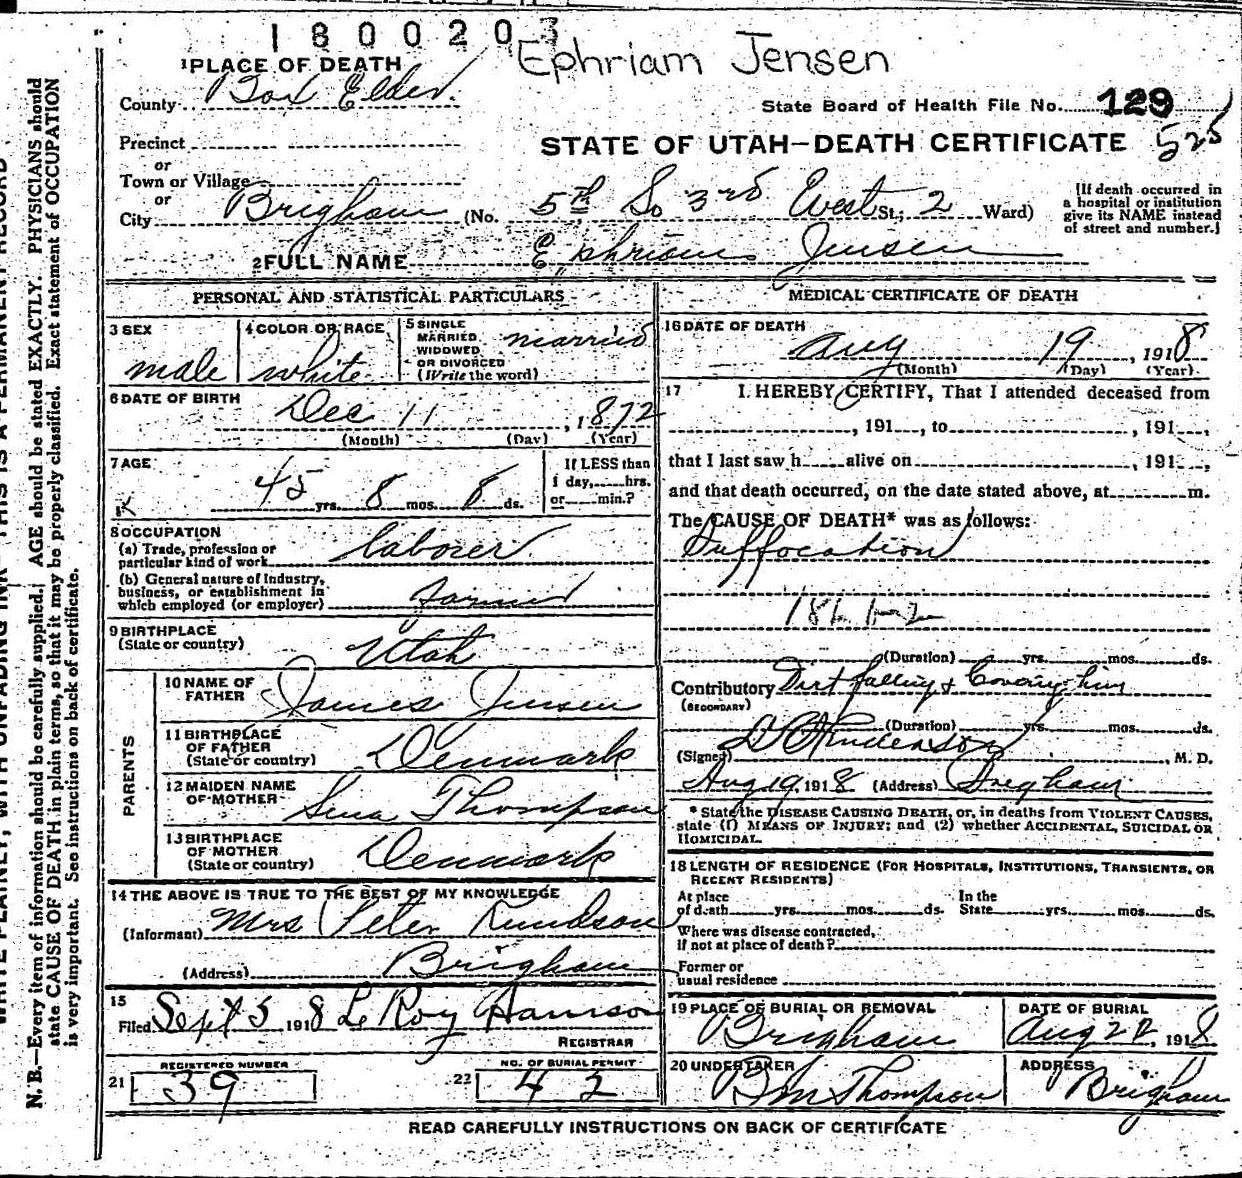 1800203
Ephriam Jensen
1 PLACE OF DEATH
County Box Elder.
State Board of Health File No. 129
Precinct
STATE OF UTAH—DEATH CERTIFICATE 525
or
Town or Village
or
City Brigham (No. 5th So 3rd West St.; 2 Ward)
[If death occurred in
a hospital or institution
give its NAME instead
of street and number.]
2 FULL NAME Ephriam Jensen
PERSONAL AND STATISTICAL PARTICULARS
3 SEX
male
4 COLOR OR RACE
white
5 SINGLE
MARRIED,
WIDOWED
OR DIVORCED
(Write the word)
married
6 DATE OF BIRTH
Dec 11, 1872
(Month) (Day) (Year)
7 AGE
45 yrs. 8 mos. 8 ds.
If LESS than
1 day, hrs.
or min.?
8 OCCUPATION
(a) Trade, profession or
particular kind of work laborer
(b) General nature of Industry,
business, or establishment in
which employed (or employer)
9 BIRTHPLACE
(State or country) Utah
PARENTS
10 NAME OF
FATHER James Jensen
11 BIRTHPLACE
OF FATHER
(State or country) Denmark
12 MAIDEN NAME
OF MOTHER Sena Thompson
13 BIRTHPLACE
OF MOTHER
(State or country) Denmark
14 THE ABOVE IS TRUE TO THE BEST OF MY KNOWLEDGE
(Informant) Mrs Peter Knudson
(Address) Brigham
15
Filed Sept 5 1918 Le Roy Harrison
REGISTRAR
REGISTERED NUMBER
21 39
NO. OF BURIAL PERMIT
22 42
MEDICAL CERTIFICATE OF DEATH
16 DATE OF DEATH
Aug 19, 1918
(Month) (Day) (Year)
17 I HEREBY CERTIFY, That I attended deceased from
, 191 , to , 191 ,
that I last saw h alive on , 191 ,
and that death occurred, on the date stated above, at m.
The CAUSE OF DEATH* was as follows:
Suffocation
186 1-2
(Duration) yrs. mos. ds.
Contributory Dirt falling & Covering him
(SECONDARY)
(Duration) yrs. mos. ds.
(Signed) , M. D.
Aug 19, 1918 (Address) Brigham
* State the DISEASE CAUSING DEATH, or, in deaths from VIOLENT CAUSES,
state (1) MEANS OF INJURY; and (2) whether ACCIDENTAL, SUICIDAL OR
HOMICIDAL.
18 LENGTH OF RESIDENCE (FOR HOSPITALS, INSTITUTIONS, TRANSIENTS, OR
RECENT RESIDENTS)
At place In the
of death yrs. mos. ds. State yrs. mos. ds.
Where was disease contracted,
if not at place of death?
Former or
usual residence
19 PLACE OF BURIAL OR REMOVAL
Brigham
DATE OF BURIAL
Aug 22, 1918
20 UNDERTAKER
Thompson
ADDRESS
Brigham
READ CAREFULLY INSTRUCTIONS ON BACK OF CERTIFICATE
N. B.—Every item of information should be carefully supplied. AGE should be stated EXACTLY. PHYSICIANS should
state CAUSE OF DEATH in plain terms, so that it may be properly classified. Exact statement of OCCUPATION
is very important. See instructions on back of certificate.